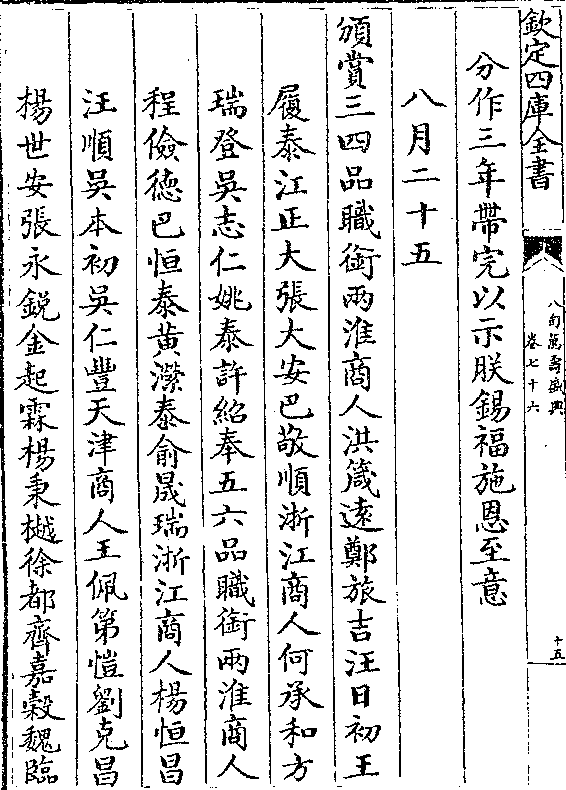 欽定四庫全書
八旬萬壽盛典
卷七十六
十五
分作三年帶完以示朕錫福施恩至意
八月二十五
頒賞三四品職銜兩淮商人洪箴遠鄭旅吉汪日初王
履泰江正大張大安巴敬順浙江商人何承和方
瑞登吳志仁姚泰許紹奉五六品職銜兩淮商人
程儉德巴恒泰黃濚泰俞晟瑞浙江商人楊恒昌
汪順吳本初吳仁豐天津商人王佩第愷劉克昌
楊世安張永銳金起霖楊秉樾徐都齊嘉穀魏臨